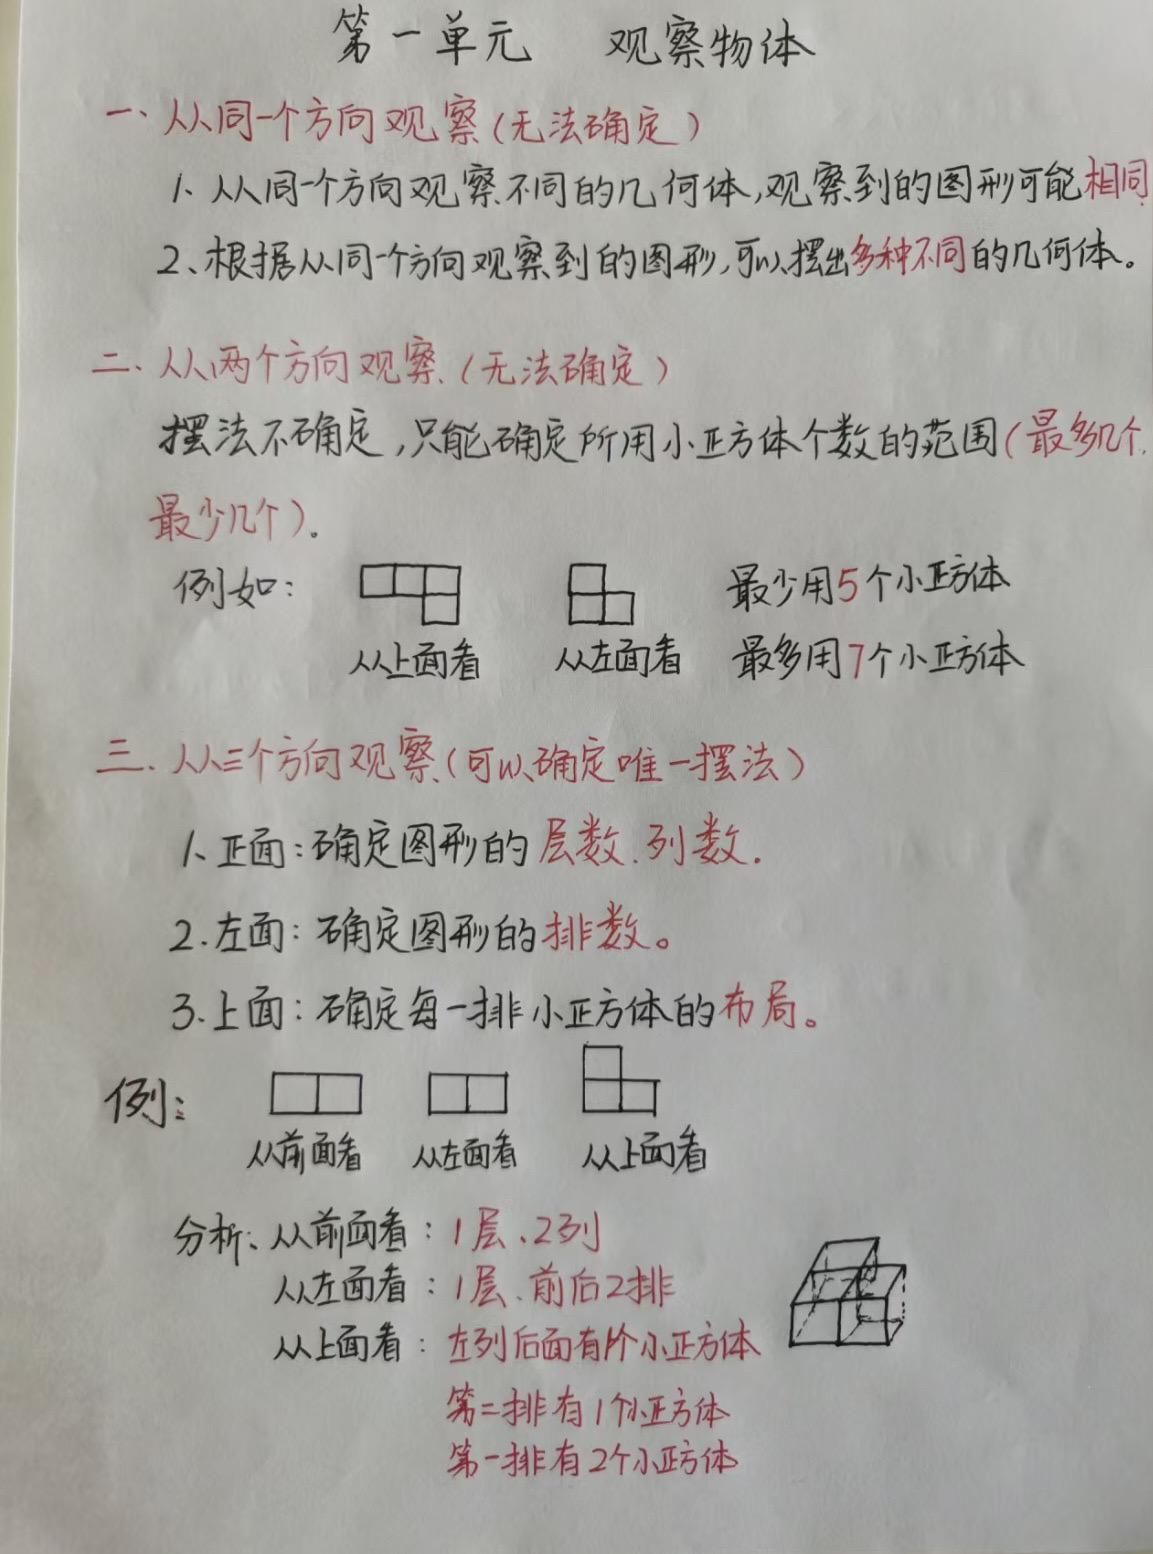 第一单元 观察物体
一、从同一个方向观察(无法确定)
1、从同一个方向观察不同的几何体,观察到的图形可能相同.
2、根据从同一个方向观察到的图形,可以摆出多种不同的几何体。
二、从两个方向观察.(无法确定)
摆法不确定,只能确定所用小正方体个数的范围(最多几个.
最少几个)。
例如: 最少用5个小正方体
从上面看 从左面看 最多用7个小正方体
三、从三个方向观察(可以确定唯一摆法)
1、正面:确定图形的层数.列数.
2.左面:确定图形的排数。
3.上面:确定每一排小正方体的布局。
例:
从前面看 从左面看 从上面看
分析:从前面看:1层、2列
从左面看:1层、前后2排
从上面看:左列后面有1个小正方体
第二排有1个小正方体
第一排有2个小正方体